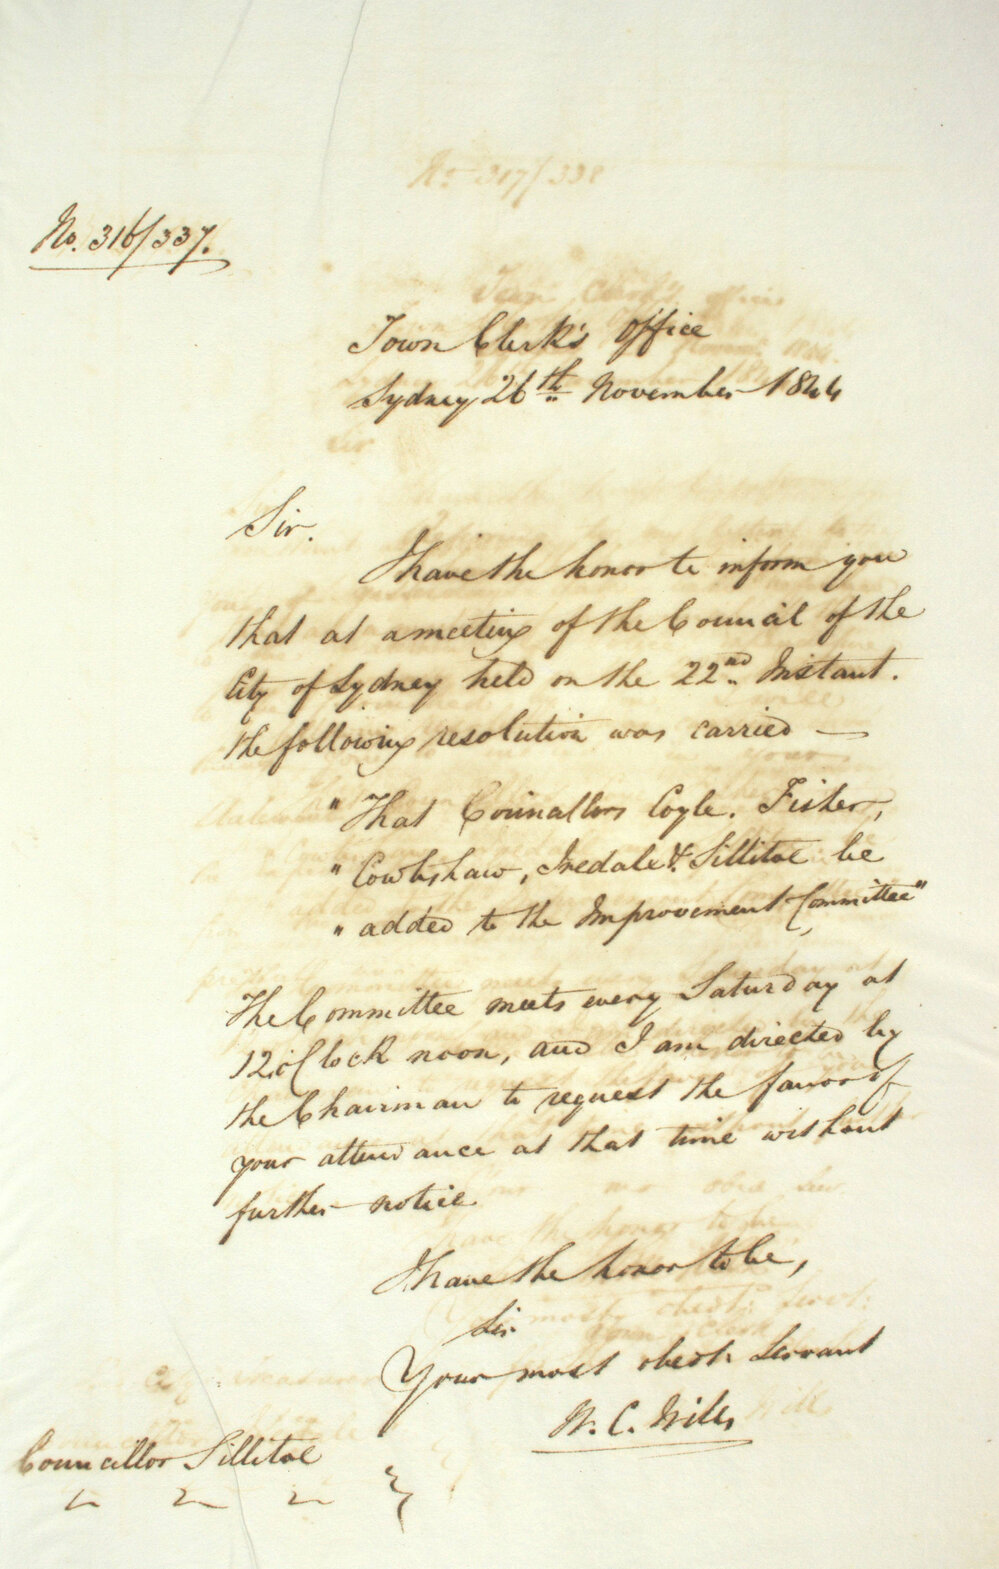 No. 316/337.
Town Clerk's Office
Sydney 26th November 1844
Sir.
I have the honor to inform you
that at a meeting of the Council of the
City of Sydney held on the 22nd Instant.
the following resolution was carried —
" That Councillors Coyle. Fisher,
" Cowlishaw, Iredale & Sillitoe be
" added to the Improvement Committee"
The Committee meets every Saturday at
12 o'Clock noon, and I am directed by
the Chairman to request the favor of
your attendance at that time without
further notice
I have the honor to be,
Sir
Your most obedt. Servant
W. C. Wills
Councillor Sillitoe